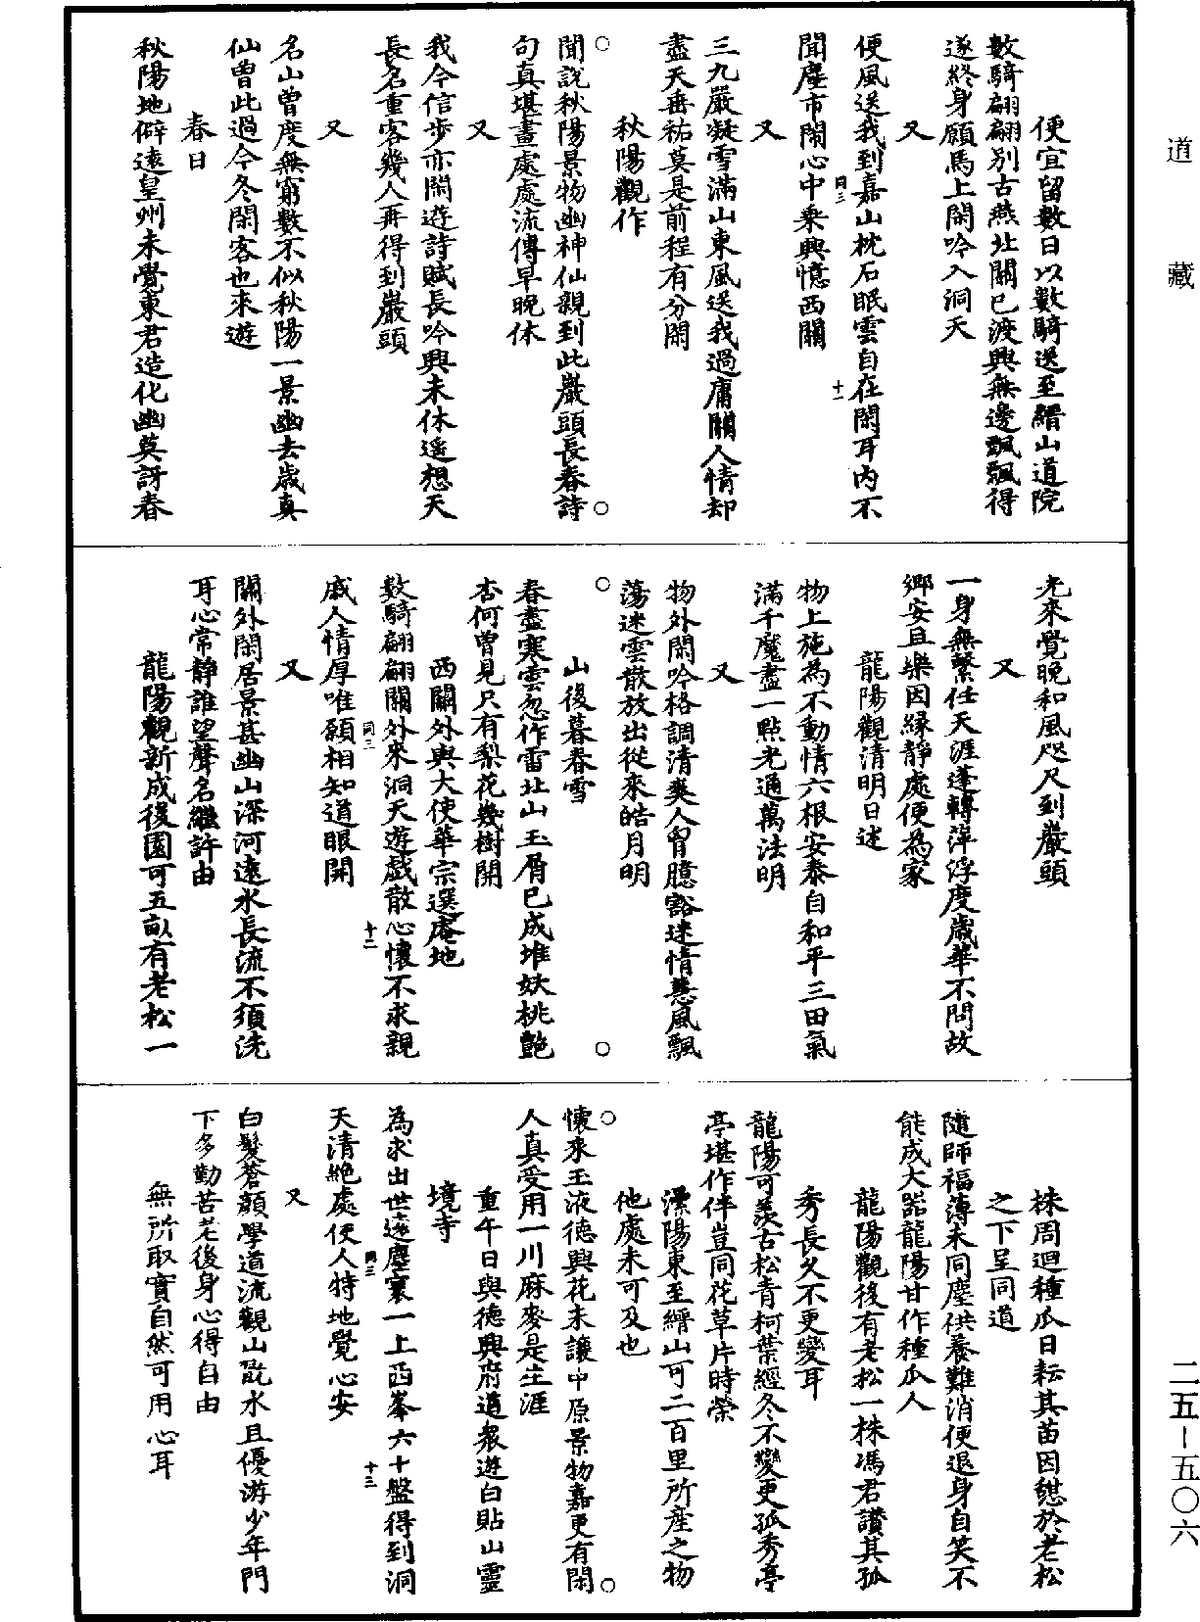 道藏
便宜留數日以數騎送至縉山道院
數騎翩翩別古燕北關已渡興無邊飄飄得
遂終身願馬上閑吟入洞天
又
便風送我到嘉山枕石眠雲自在閑耳內不
同三
十一
聞塵市鬧心中乘興憶西關
又
三九嚴凝雪滿山東風送我過庸關人情却
盡天垂祐莫是前程有分閑
秋陽觀作
聞說秋陽景物幽神仙親到此巖頭長春詩
句真堪畫處處流傳早晚休
又
我今信步亦閑遊詩賦長吟興未休遥想天
長名重客幾人再得到巖頭
又
名山曾度無窮數不似秋陽一景幽去歲真
仙曾此過今冬閑客也來遊
春日
秋陽地僻遠皇州未覺東君造化幽莫訝春
光來覺晚和風咫尺到巖頭
又
一身無繫任天涯蓬轉萍浮度歲華不問故
鄉安且樂因緣靜處便為家
龍陽觀清明日述
物上施為不動情六根安泰自和平三田氣
滿千魔盡一點光通萬法明
又
物外閑吟格調清爽人胷臆豁迷情慧風飄
蕩迷雲散放出從來皓月明
山後暮春雪
春盡寒雲忽作雷北山玉屑已成堆妖桃艷
杏何曾見只有梨花幾樹開
西關外與大使華宗選庵地
數騎翩翩關外來洞天遊戲散心懷不求親
同三
十二
戚人情厚唯願相知道眼開
又
關外閑居景甚幽山深河遠水長流不須洗
耳心常靜誰望聲名繼許由
龍陽觀新成後園可五畝有老松一
株周迴種瓜日耘其苗因憇於老松
之下呈同道
隨師福薄未同塵供養難消便退身自笑不
能成大器龍陽甘作種瓜人
龍陽觀後有老松一株馮君讚其孤
秀長久不更變耳
龍陽可羨古松青柯葉經冬不變更孤秀亭
亭堪作伴豈同花草片時榮
灅陽東至縉山可二百里所產之物
他處未可及也
懷來玉液德興花未讓中原景物嘉更有閑
人真受用一川麻麥是生涯
重午日與德興府道衆遊白貼山靈
境寺
為求出世遠塵寰一上西峯六十盤得到洞
同三
十三
天清絕處使人特地覺心安
又
白髮蒼顏學道流觀山翫水且優游少年門
下多勤苦老後身心得自由
無所取實自然可用心耳
二五—五〇六